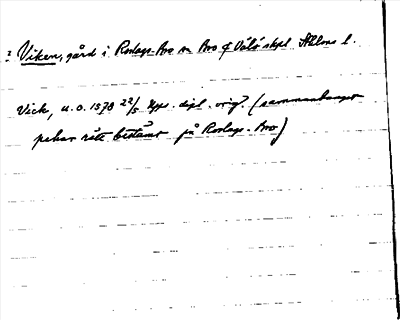 ? Viken, gård i Roslags-Bro sn Bro o Vätö skpl Sthlms l.
Vick, u. o. 1570 22/5 Upps. dipl. orig. (sammanhanget
pekar rätt bestämt på Roslags-Bro)